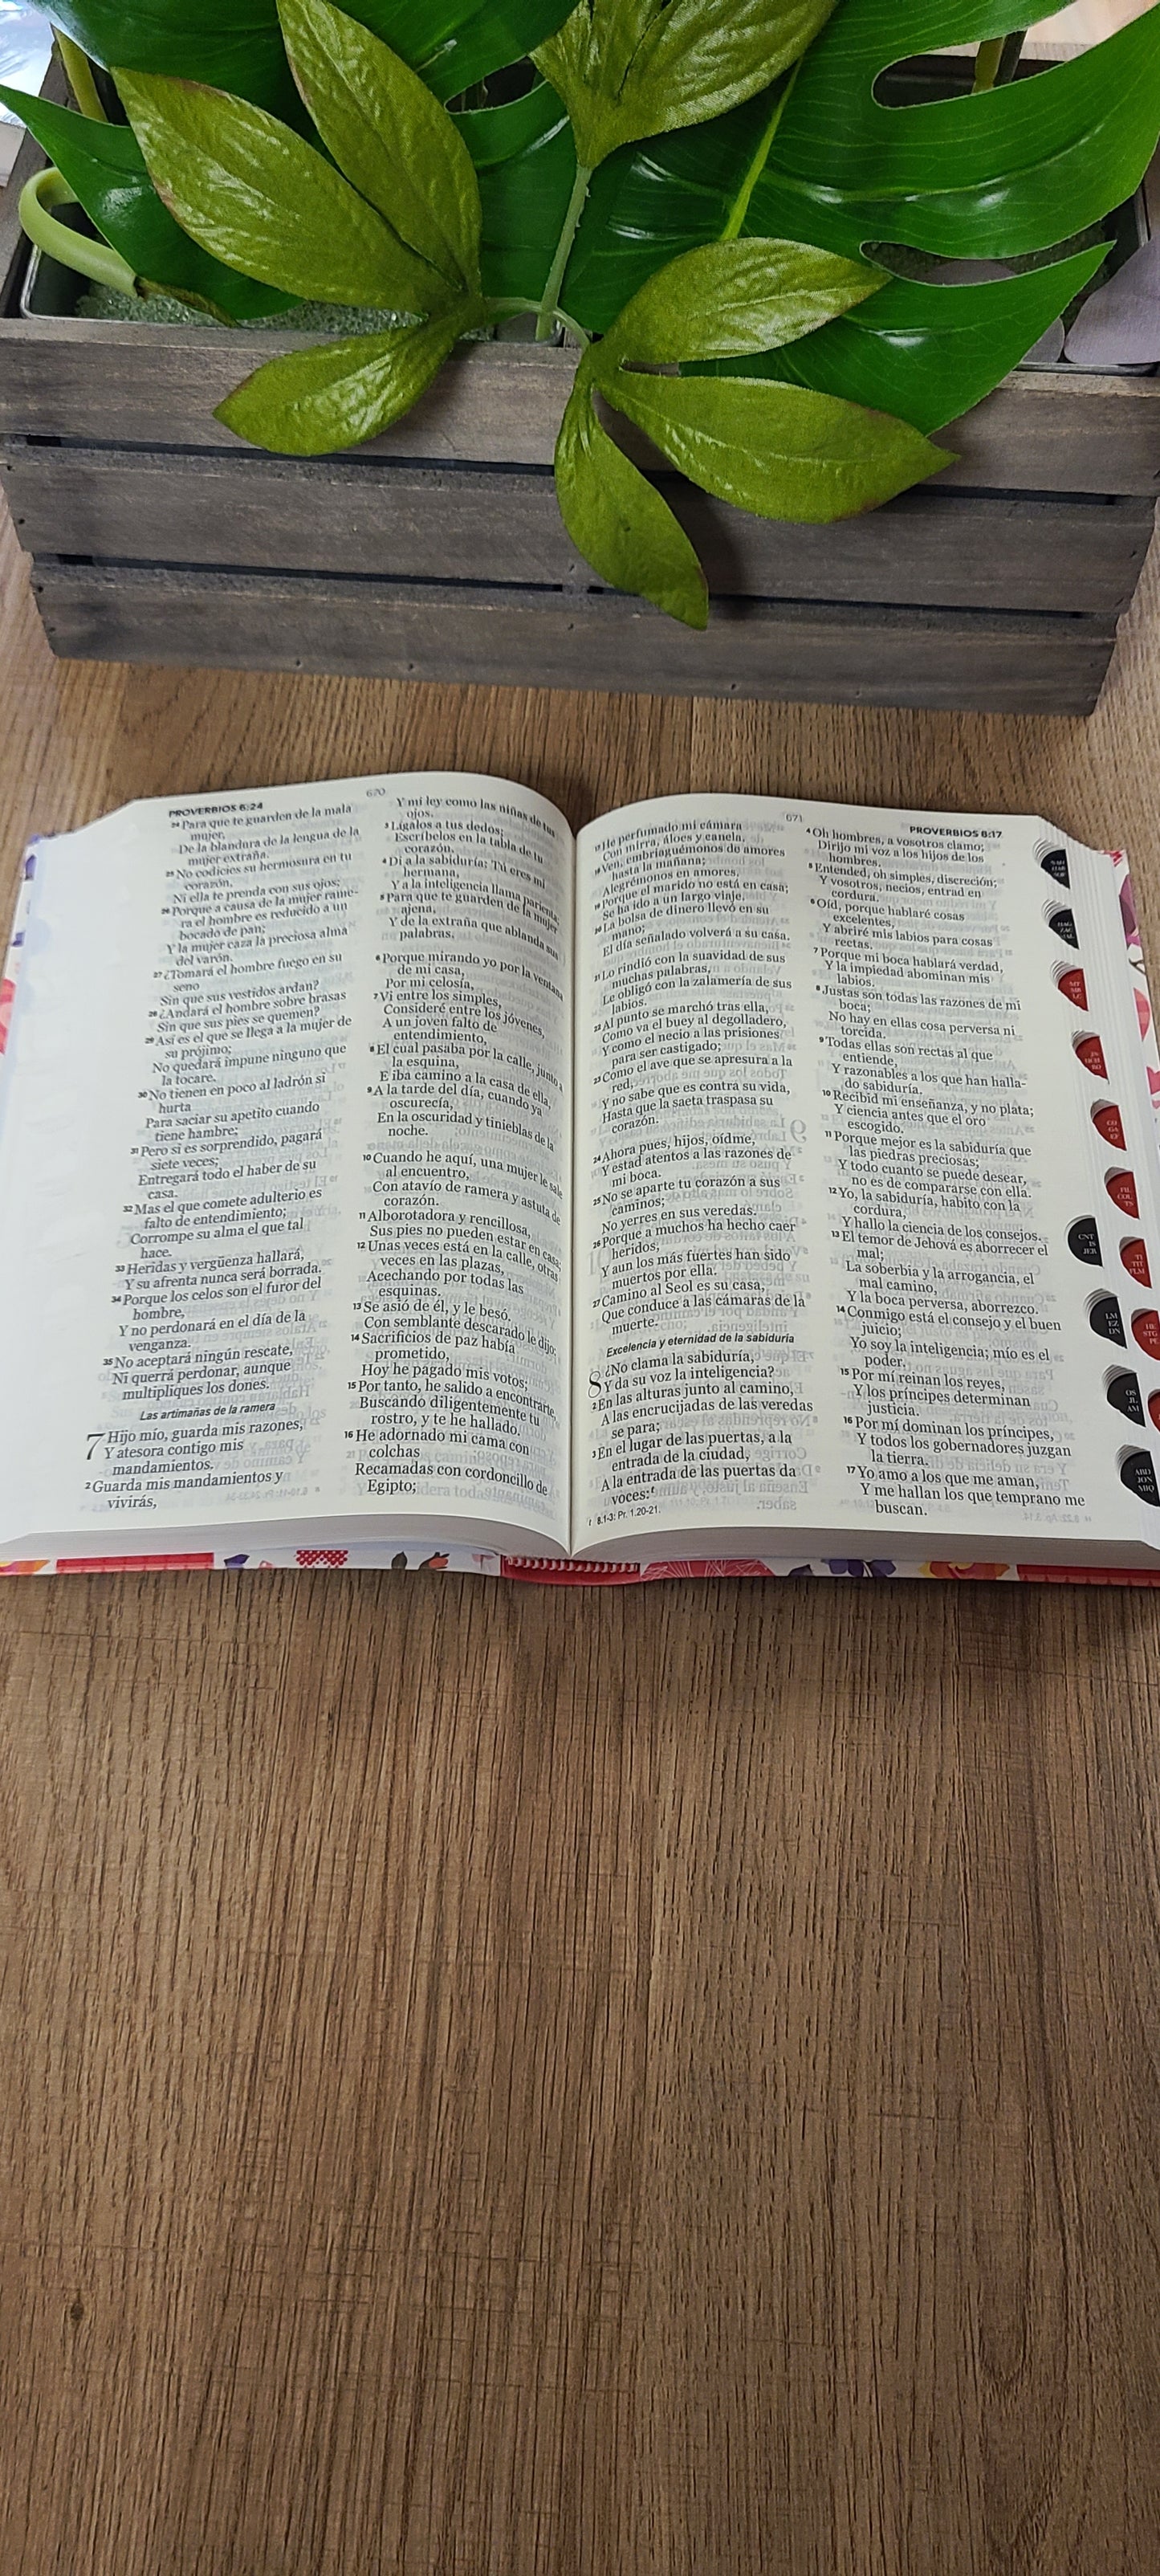 PROVERBIOS 6:24
670
24 Para que te guarden de la mala
mujer,
De la blandura de la lengua de la
mujer extraña.
25 No codicies su hermosura en tu
corazón,
Ni ella te prenda con sus ojos;
26 Porque a causa de la mujer rame-
ra el hombre es reducido a un
bocado de pan;
Y la mujer caza la preciosa alma
del varón.
27 ¿Tomará el hombre fuego en su
seno
Sin que sus vestidos ardan?
28 ¿Andará el hombre sobre brasas
Sin que sus pies se quemen?
29 Así es el que se llega a la mujer de
su prójimo;
No quedará impune ninguno que
la tocare.
30 No tienen en poco al ladrón si
hurta
Para saciar su apetito cuando
tiene hambre;
31 Pero si es sorprendido, pagará
siete veces;
Entregará todo el haber de su
casa.
32 Mas el que comete adulterio es
falto de entendimiento;
Corrompe su alma el que tal
hace.
33 Heridas y vergüenza hallará,
Y su afrenta nunca será borrada.
34 Porque los celos son el furor del
hombre,
Y no perdonará en el día de la
venganza.
35 No aceptará ningún rescate,
Ni querrá perdonar, aunque
multipliques los dones.
Las artimañas de la ramera
7 Hijo mío, guarda mis razones,
Y atesora contigo mis
mandamientos.
2 Guarda mis mandamientos y
vivirás,
Y mi ley como las niñas de tus
ojos.
3 Lígalos a tus dedos;
Escríbelos en la tabla de tu
corazón.
4 Di a la sabiduría: Tú eres mi
hermana,
Y a la inteligencia llama parienta;
5 Para que te guarden de la mujer
ajena,
Y de la extraña que ablanda sus
palabras.
6 Porque mirando yo por la ventana
de mi casa,
Por mi celosía,
7 Vi entre los simples,
Consideré entre los jóvenes,
A un joven falto de
entendimiento,
8 El cual pasaba por la calle, junto a
la esquina,
E iba camino a la casa de ella,
9 A la tarde del día, cuando ya
oscurecía,
En la oscuridad y tinieblas de la
noche.
10 Cuando he aquí, una mujer le sale
al encuentro,
Con atavío de ramera y astuta de
corazón.
11 Alborotadora y rencillosa,
Sus pies no pueden estar en casa;
12 Unas veces está en la calle, otras
veces en las plazas,
Acechando por todas las
esquinas.
13 Se asió de él, y le besó.
Con semblante descarado le dijo:
14 Sacrificios de paz había
prometido,
Hoy he pagado mis votos;
15 Por tanto, he salido a encontrarte,
Buscando diligentemente tu
rostro, y te he hallado.
16 He adornado mi cama con
colchas
Recamadas con cordoncillo de
Egipto;
671
PROVERBIOS 8:17
17 He perfumado mi cámara
Con mirra, áloes y canela.
18 Ven, embriaguémonos de amores
hasta la mañana;
Alegrémonos en amores.
19 Porque el marido no está en casa;
Se ha ido a un largo viaje.
20 La bolsa de dinero llevó en su
mano;
El día señalado volverá a su casa.
21 Lo rindió con la suavidad de sus
muchas palabras,
Le obligó con la zalamería de sus
labios.
22 Al punto se marchó tras ella,
Como va el buey al degolladero,
Y como el necio a las prisiones
para ser castigado;
23 Como el ave que se apresura a la
red,
Y no sabe que es contra su vida,
Hasta que la saeta traspasa su
corazón.
24 Ahora pues, hijos, oídme,
Y estad atentos a las razones de
mi boca.
25 No se aparte tu corazón a sus
caminos;
No yerres en sus veredas.
26 Porque a muchos ha hecho caer
heridos,
Y aun los más fuertes han sido
muertos por ella.
27 Camino al Seol es su casa,
Que conduce a las cámaras de la
muerte.
Excelencia y eternidad de la sabiduría
8 ¿No clama la sabiduría,
Y da su voz la inteligencia?
2 En las alturas junto al camino,
A las encrucijadas de las veredas
se para;
3 En el lugar de las puertas, a la
entrada de la ciudad,
A la entrada de las puertas da
voces: f
f 8.1-3: Pr. 1.20-21.
4 Oh hombres, a vosotros clamo;
Dirijo mi voz a los hijos de los
hombres.
5 Entended, oh simples, discreción;
Y vosotros, necios, entrad en
cordura.
6 Oíd, porque hablaré cosas
excelentes,
Y abriré mis labios para cosas
rectas.
7 Porque mi boca hablará verdad,
Y la impiedad abominan mis
labios.
8 Justas son todas las razones de mi
boca;
No hay en ellas cosa perversa ni
torcida.
9 Todas ellas son rectas al que
entiende,
Y razonables a los que han halla-
do sabiduría.
10 Recibid mi enseñanza, y no plata;
Y ciencia antes que el oro
escogido.
11 Porque mejor es la sabiduría que
las piedras preciosas;
Y todo cuanto se puede desear,
no es de compararse con ella.
12 Yo, la sabiduría, habito con la
cordura,
Y hallo la ciencia de los consejos.
13 El temor de Jehová es aborrecer el
mal;
La soberbia y la arrogancia, el
mal camino,
Y la boca perversa, aborrezco.
14 Conmigo está el consejo y el buen
juicio;
Yo soy la inteligencia; mío es el
poder.
15 Por mí reinan los reyes,
Y los príncipes determinan
justicia.
16 Por mí dominan los príncipes,
Y todos los gobernadores juzgan
la tierra.
17 Yo amo a los que me aman,
Y me hallan los que temprano me
buscan.
CNT
IS
JER
LM
EZ
DN
OS
JL
AM
ABD
JON
MIQ
FIL
COL
TS
TI
TIT
FLM